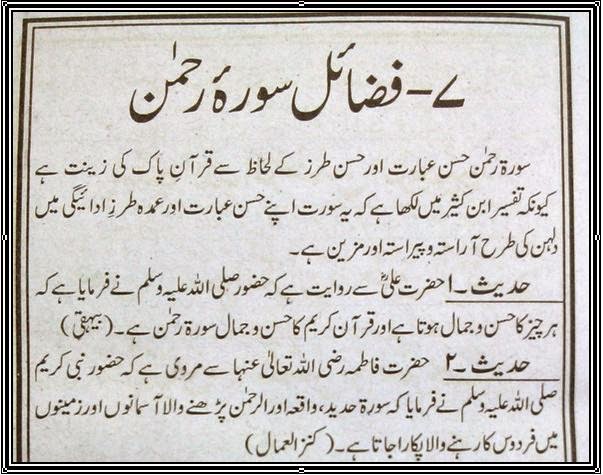 ۷- فضائل سورۂ رحمٰن
سورۃ رحمٰن حسن عبارت اور حسن طرز کے لحاظ سے قرآنِ پاک کی زینت ہے
کیونکہ تفسیر ابن کثیر میں لکھا ہے کہ یہ سورت اپنے حسن عبارت اور عمدہ طرزِ ادائیگی میں
دلہن کی طرح آراستہ و پیراستہ اور مزین ہے۔
حدیث ۔۱ حضرت علیؓ سے روایت ہے کہ حضور صلی اللہ علیہ وسلم نے فرمایا ہے کہ
ہر چیز کا حسن و جمال ہوتا ہے اور قرآن کریم کا حسن و جمال سورۃ رحمٰن ہے۔ (بیہقی)
حدیث ۔۲ حضرت فاطمہ رضی اللہ تعالیٰ عنہا سے مروی ہے کہ حضور نبی کریم
صلی اللہ علیہ وسلم نے فرمایا کہ سورۃ حدید، واقعہ اور الرحمٰن پڑھنے والا آسمانوں اور زمینوں
میں فردوس کا رہنے والا پکارا جاتا ہے۔ (کنزالعمال)